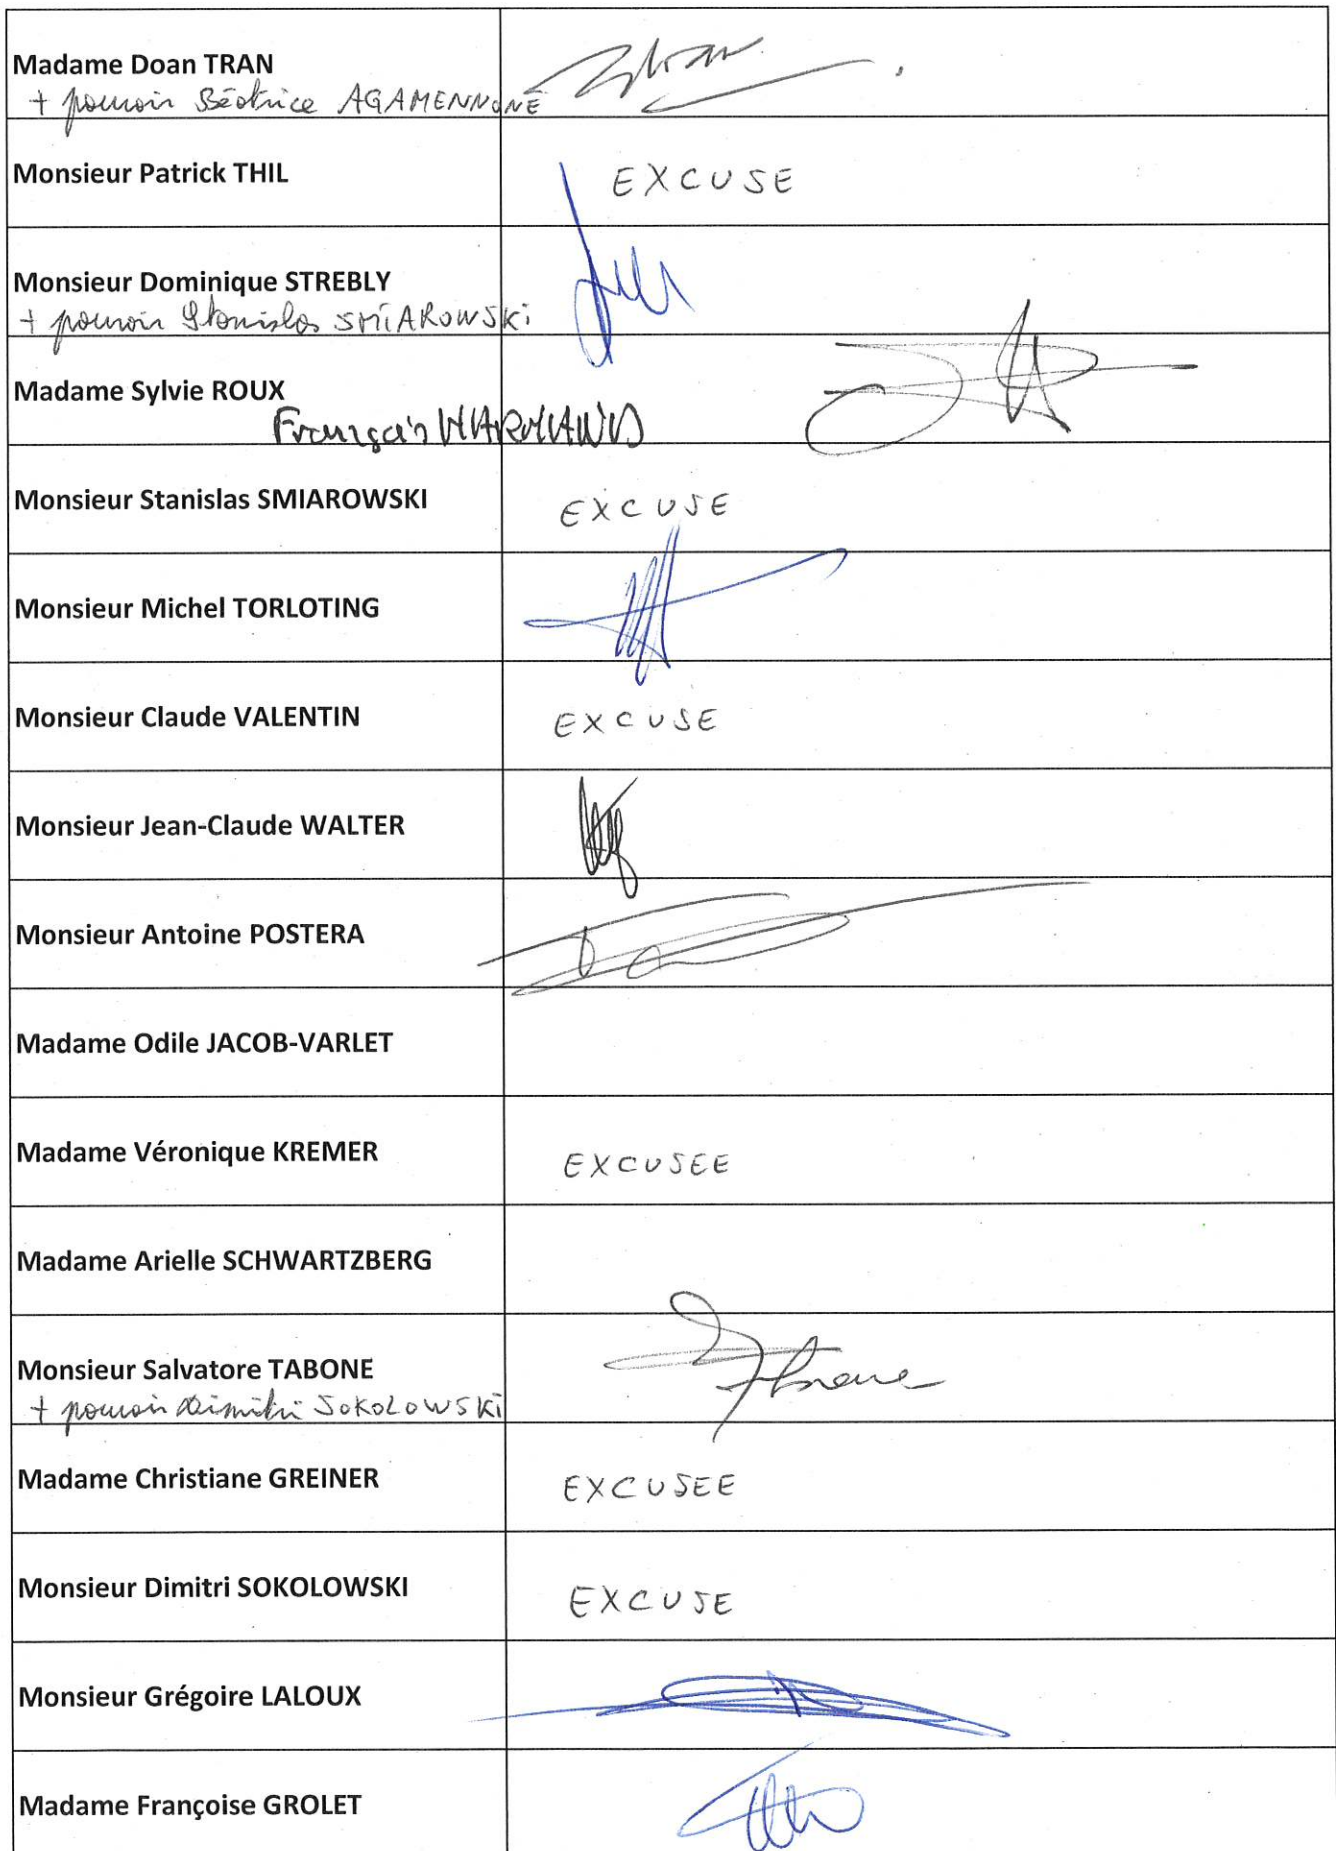 Madame Doan TRAN
+ pouvoir Béatrice AGAMENNONE
Monsieur Patrick THIL
EXCUSE
Monsieur Dominique STREBLY
+ pouvoir Stanislas SMIAROWSKI
Madame Sylvie ROUX
François
Monsieur Stanislas SMIAROWSKI
EXCUSE
Monsieur Michel TORLOTING
Monsieur Claude VALENTIN
EXCUSE
Monsieur Jean-Claude WALTER
Monsieur Antoine POSTERA
Madame Odile JACOB-VARLET
Madame Véronique KREMER
EXCUSEE
Madame Arielle SCHWARTZBERG
Monsieur Salvatore TABONE
+ pouvoir Dimitri SOKOLOWSKI
Madame Christiane GREINER
EXCUSEE
Monsieur Dimitri SOKOLOWSKI
EXCUSE
Monsieur Grégoire LALOUX
Madame Françoise GROLET